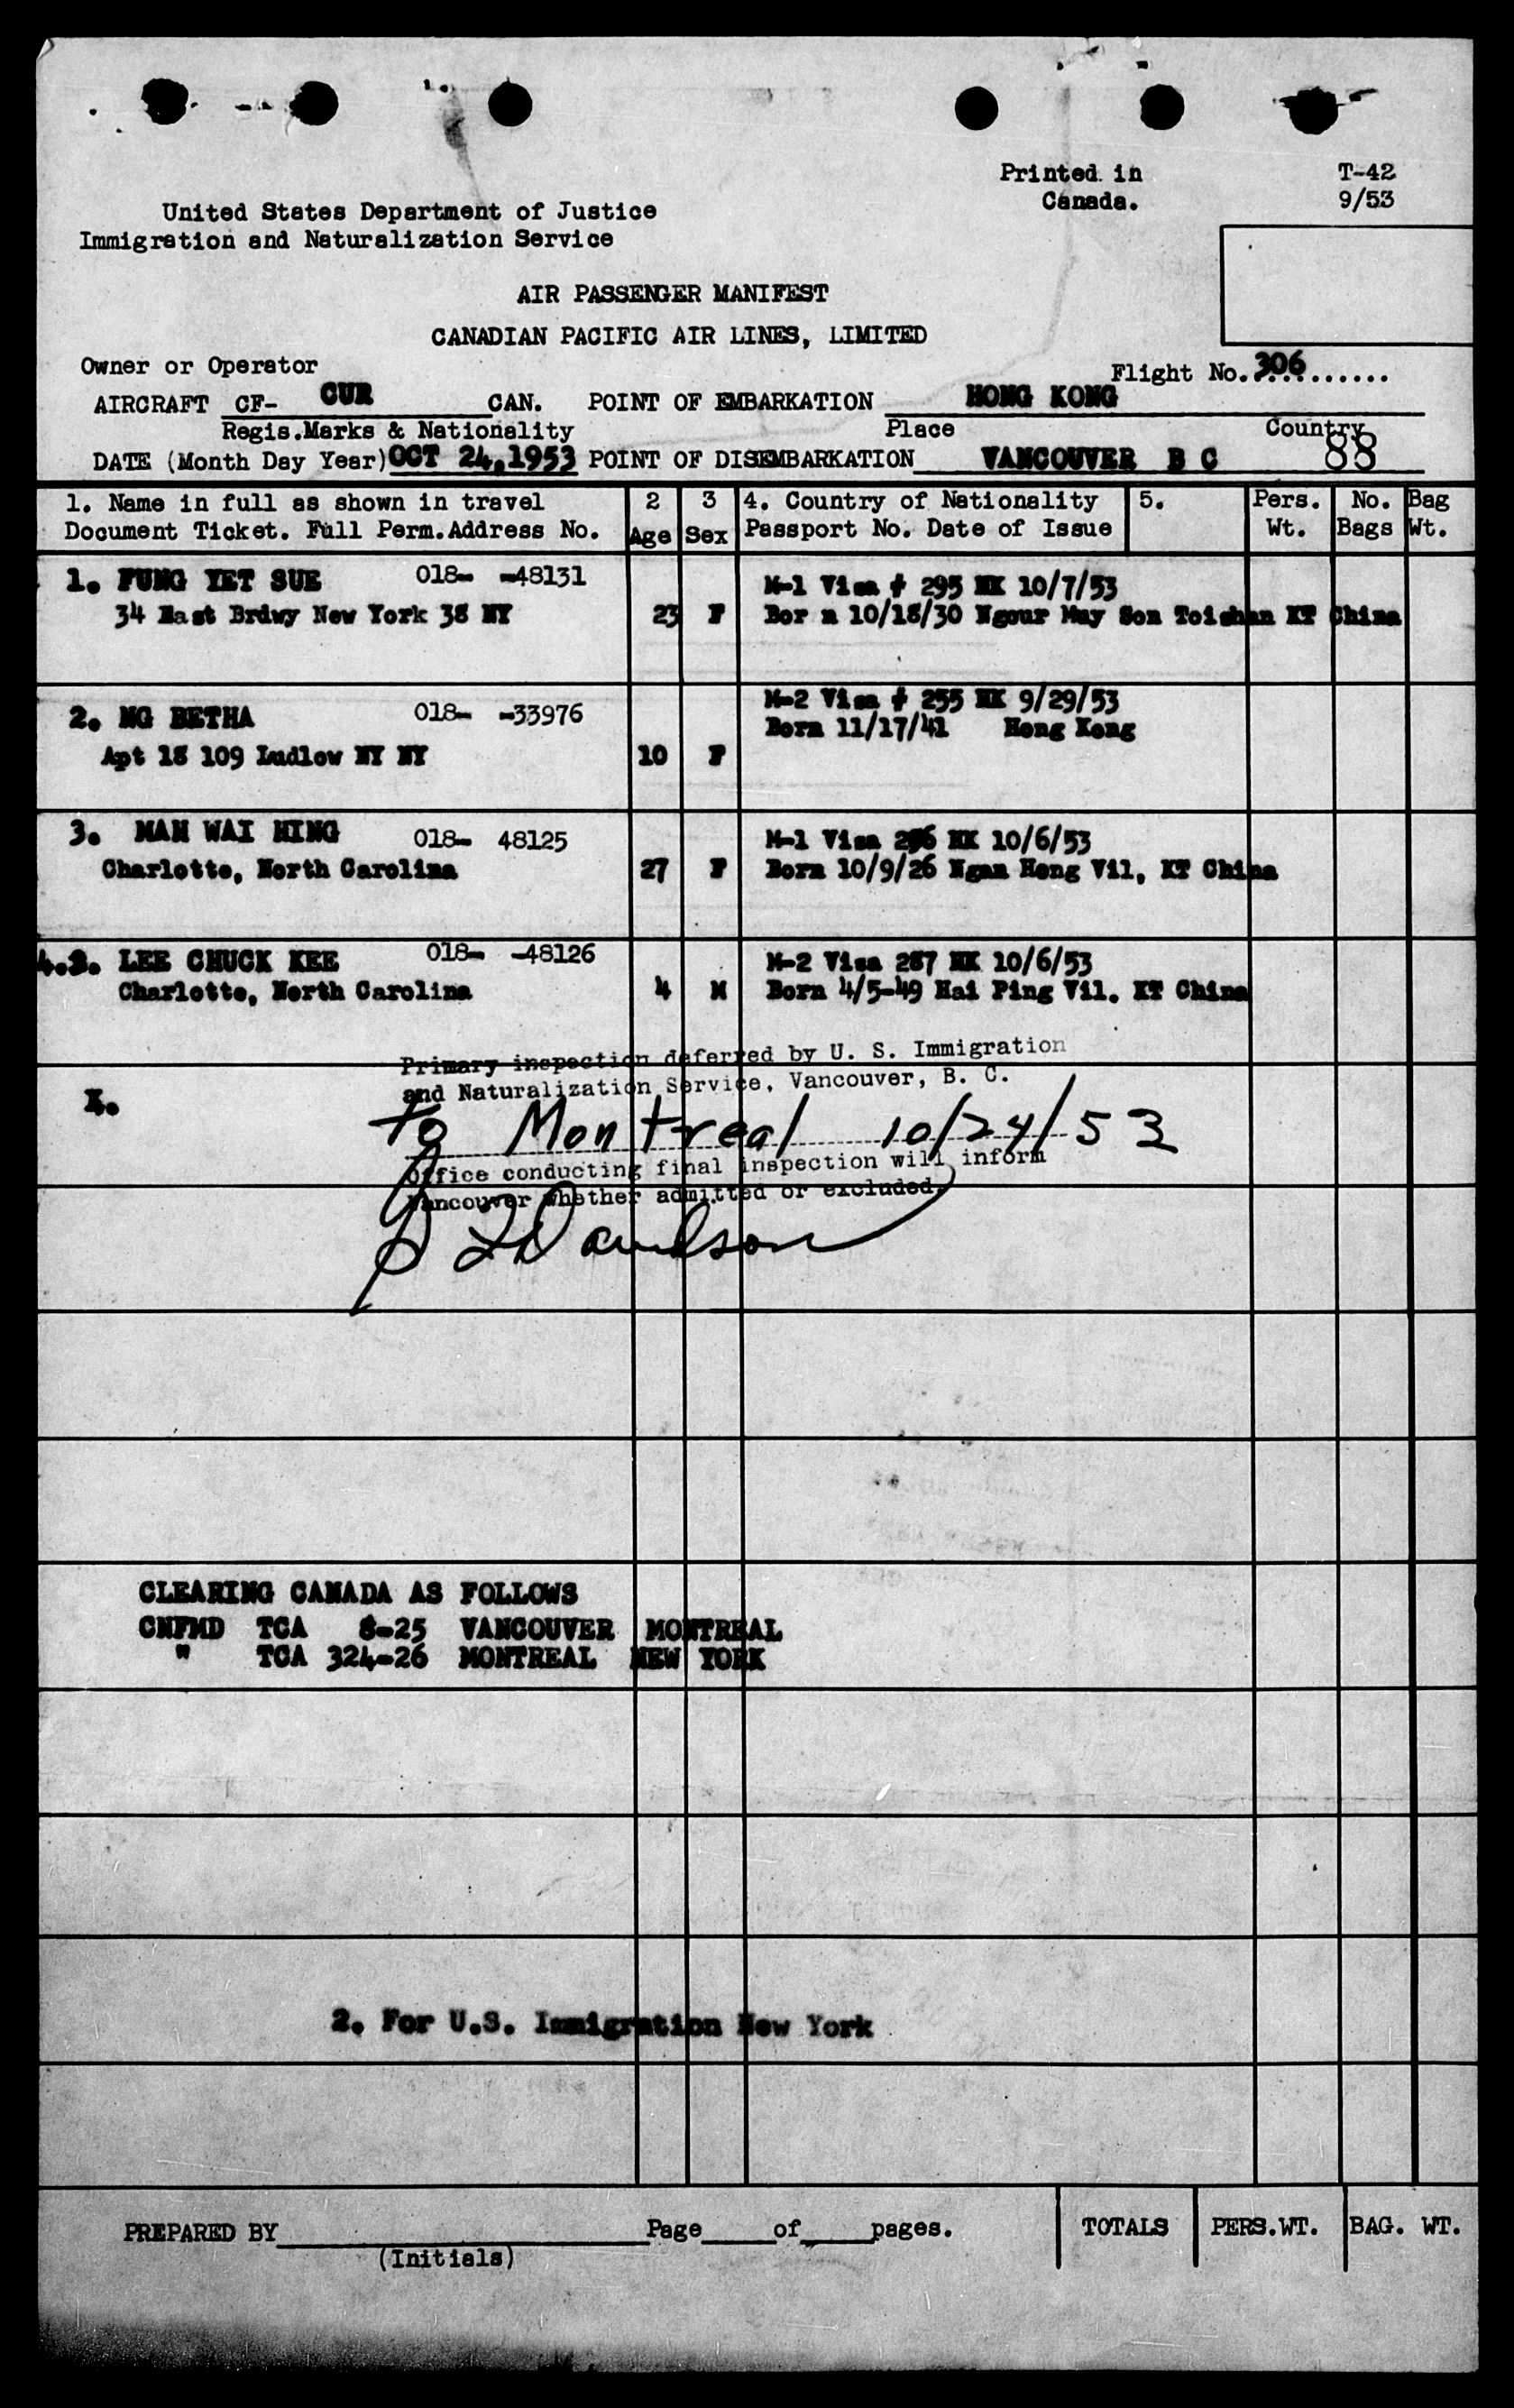 Printed in T-42
Canada. 9/53
United States Department of Justice
Immigration and Naturalization Service
AIR PASSENGER MANIFEST
CANADIAN PACIFIC AIR LINES, LIMITED
Owner or Operator Flight No. 306..........
AIRCRAFT CF- CUR CAN. POINT OF EMBARKATION HONG KONG
Regis.Marks & Nationality Place Country
DATE (Month Day Year) OCT 24,1953 POINT OF DISEMBARKATION VANCOUVER B C 88
1. Name in full as shown in travel 2 3 4. Country of Nationality 5. Pers. No. Bag
Document Ticket. Full Perm.Address No. Age Sex Passport No. Date of Issue Wt. Bags Wt.
1. FUNG YET SUE 018- -48131 M-1 Visa # 295 HK 10/7/53
34 East Brdwy New York 38 NY 23 F Bor n 10/18/30 Ngour May Son Toishan KT China
2. NG BETHA 018- -33976 M-2 Visa # 255 HK 9/29/53
Born 11/17/41 Hong Kong
Apt 18 109 Ludlow NY NY 10 F
3. MAH WAI HING 018- 48125 M-1 Visa HK 10/6/53
Charlotte, North Carolina 27 F Born 10/9/26 Ngan Hong Vil, KT China
4. LEE CHUCK KEE 018- -48126 M-2 Visa 287 HK 10/6/53
Charlotte, North Carolina 4 M Born 4/5-49 Hai Ping Vil. KT China
Primary inspection deferred by U. S. Immigration
and Naturalization Service, Vancouver, B. C.
To Montreal 10/24/53
Office conducting final inspection will inform
Vancouver whether admitted or excluded.
Davidson
CLEARING CANADA AS FOLLOWS
CNFMD TCA 8-25 VANCOUVER MONTREAL
" TCA 324-26 MONTREAL NEW YORK
2. For U.S. Immigration New York
PREPARED BY Page of pages. TOTALS PERS.WT. BAG. WT.
(Initials)